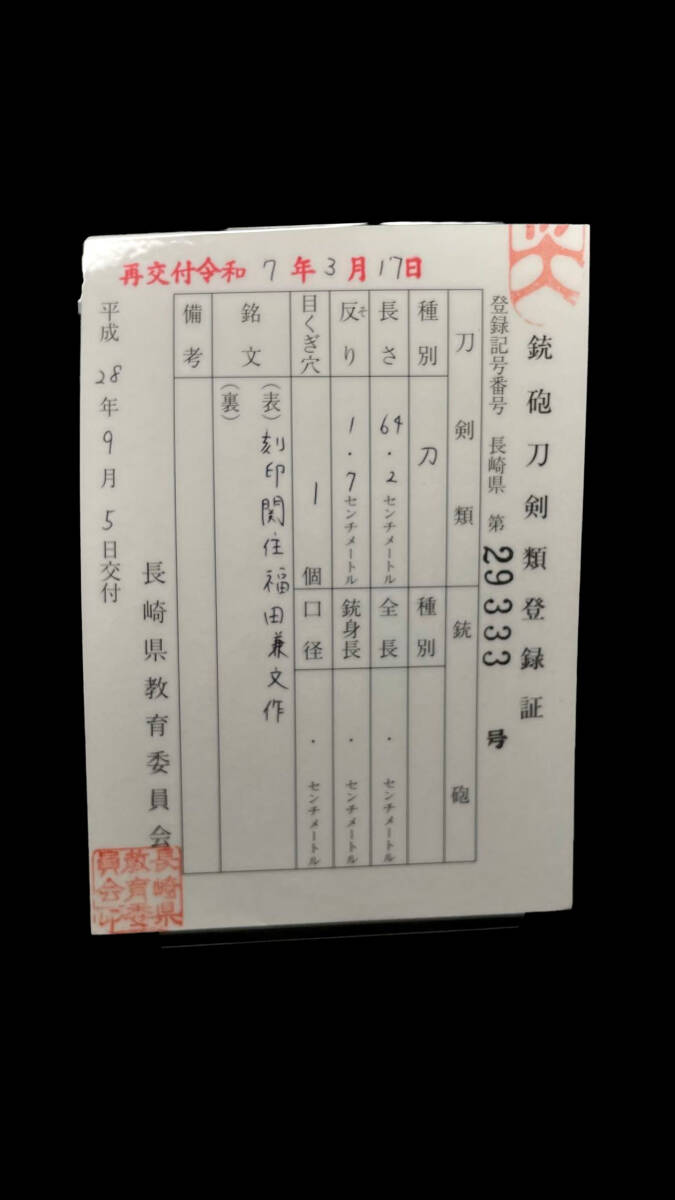 再交付令和7年3月17日
銃砲刀剣類登録証
登録記号番号 長崎県 第29333号
刀剣類
銃砲
種別 刀
種別
長さ 64.2センチメートル
全長 ・ センチメートル
反り 1.7センチメートル
そ
銃身長 ・ センチメートル
目くぎ穴 1個
口径 ・ センチメートル
銘文 (表)刻印関住福田兼文作
(裏)
備考
平成28年9月5日交付
長崎県教育委員会
長崎県
教育委
員会印